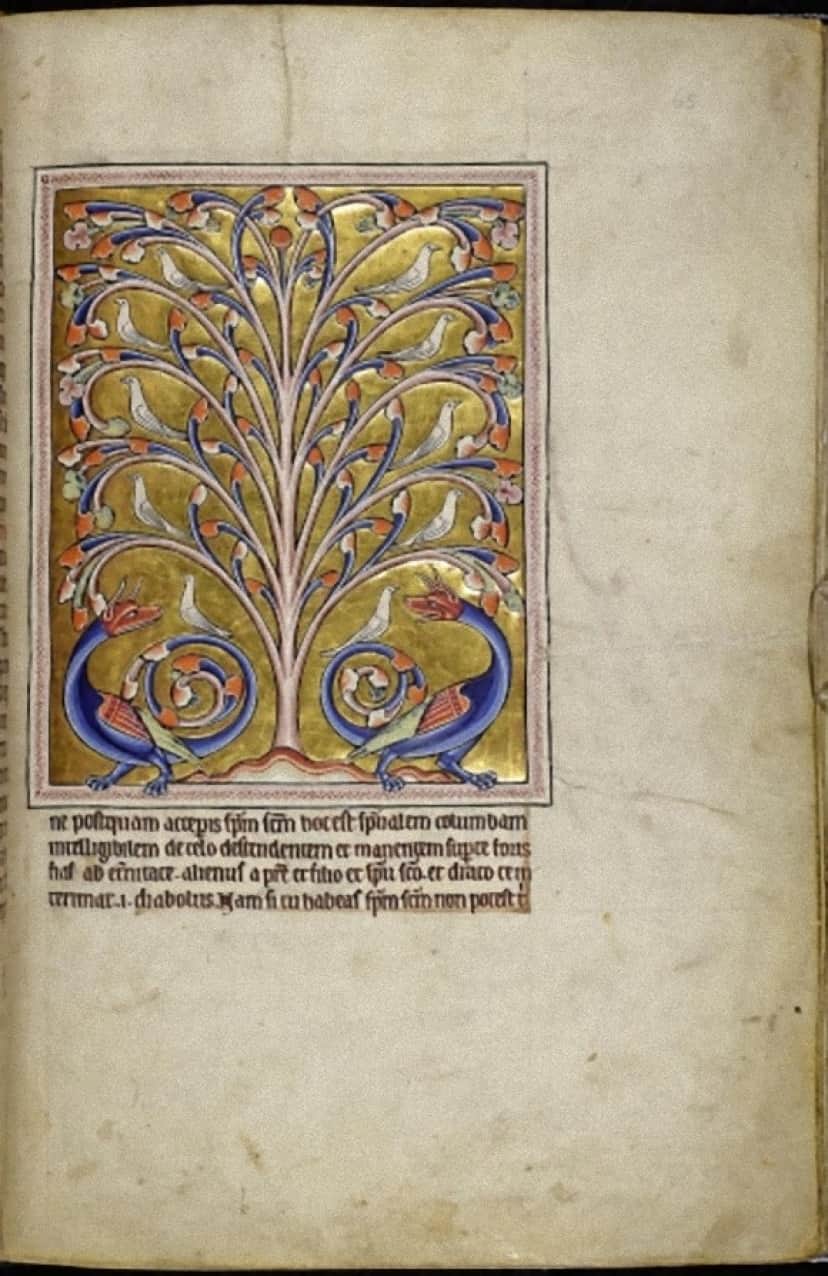 65
ne postquam accepis spm scm hoc est spualem columbam
intelligibilem de celo descendentem et manentem super te foris
fias ab etnitate. alienus a pre et filio et spu sco. et draco te in
terimat .i. diabolus. Nam si tu habeas spm scm non potest t